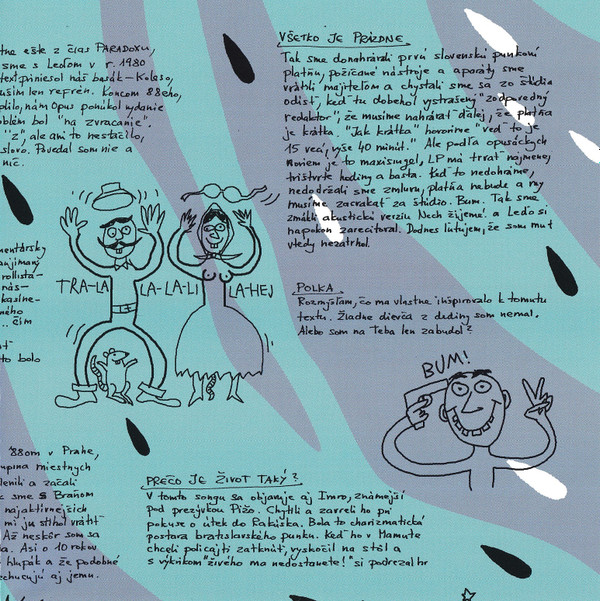 tne ešte z čias PARADOXU,
sme s Leďom v r. 1980
text priniesol náš basák - Koleso,
ušim len refrén. Koncom 88eho,
nilo, nám Opus ponúkol vydanie
oblém bol "na zvracanie".
"z", ale ani to nestačilo,
slovo. Povedal som nie a
nič.
mentársky
rollistá-
nás-
kasíne-
ného
.. čím
to bolo
'88om v Prahe,
upina miestnych
lenili a začali
k sme s Braňom
najaktívnejších
mi ju stihol vrátiť
Až neskôr som sa
a. Asi o 10 rokov
hlupák a že podobné
echucujú aj jemu.
TRA-LA LA-LA-LI LA-HEJ
VŠETKO JE PRÁZDNE
Tak sme donahrávali prvú slovenskú punkovú
platňu, požičané nástroje a aparáty sme
vrátili majiteľom a chystali sme sa zo štúdia
odísť, keď tu dobehol vystrašený "zodpovedný
redaktor", že musíme nahrávať ďalej, že platňa
je krátka. "Jak krátka" hovoríme "veď to je
15 vecí, vyše 40 minút." Ale podľa opusáckych
noriem je to maxisingel, LP má trvať najmenej
trištvrte hodiny a basta. Keď to nedohráme,
nedodržali sme zmluvu, platňa nebude a my
musíme zacvakať za štúdio. Bum. Tak sme
zmákli akustickú verziu Nech žijeme! a Leďo si
napokon zarecitoval. Dodnes ľutujem, že som mu
vtedy nezatrhol.
POLKA
Rozmýšľam, čo ma vlastne inšpirovalo k tomuto
textu. Žiadne dievča z dediny som nemal.
Alebo som na Teba len zabudol?
BUM!
PREČO JE ŽIVOT TAKÝ?
V tomto songu sa objavuje aj Imro, známejší
pod prezývkou Pižo. Chytili a zavreli ho pri
pokuse o útek do Rakúska. Bola to charizmatická
postava bratislavského punku. Keď ho v Mamute
chceli policajti zatknúť, vyskočil na stôl a
s výkrikom "živého ma nedostanete!" si podrezal hr